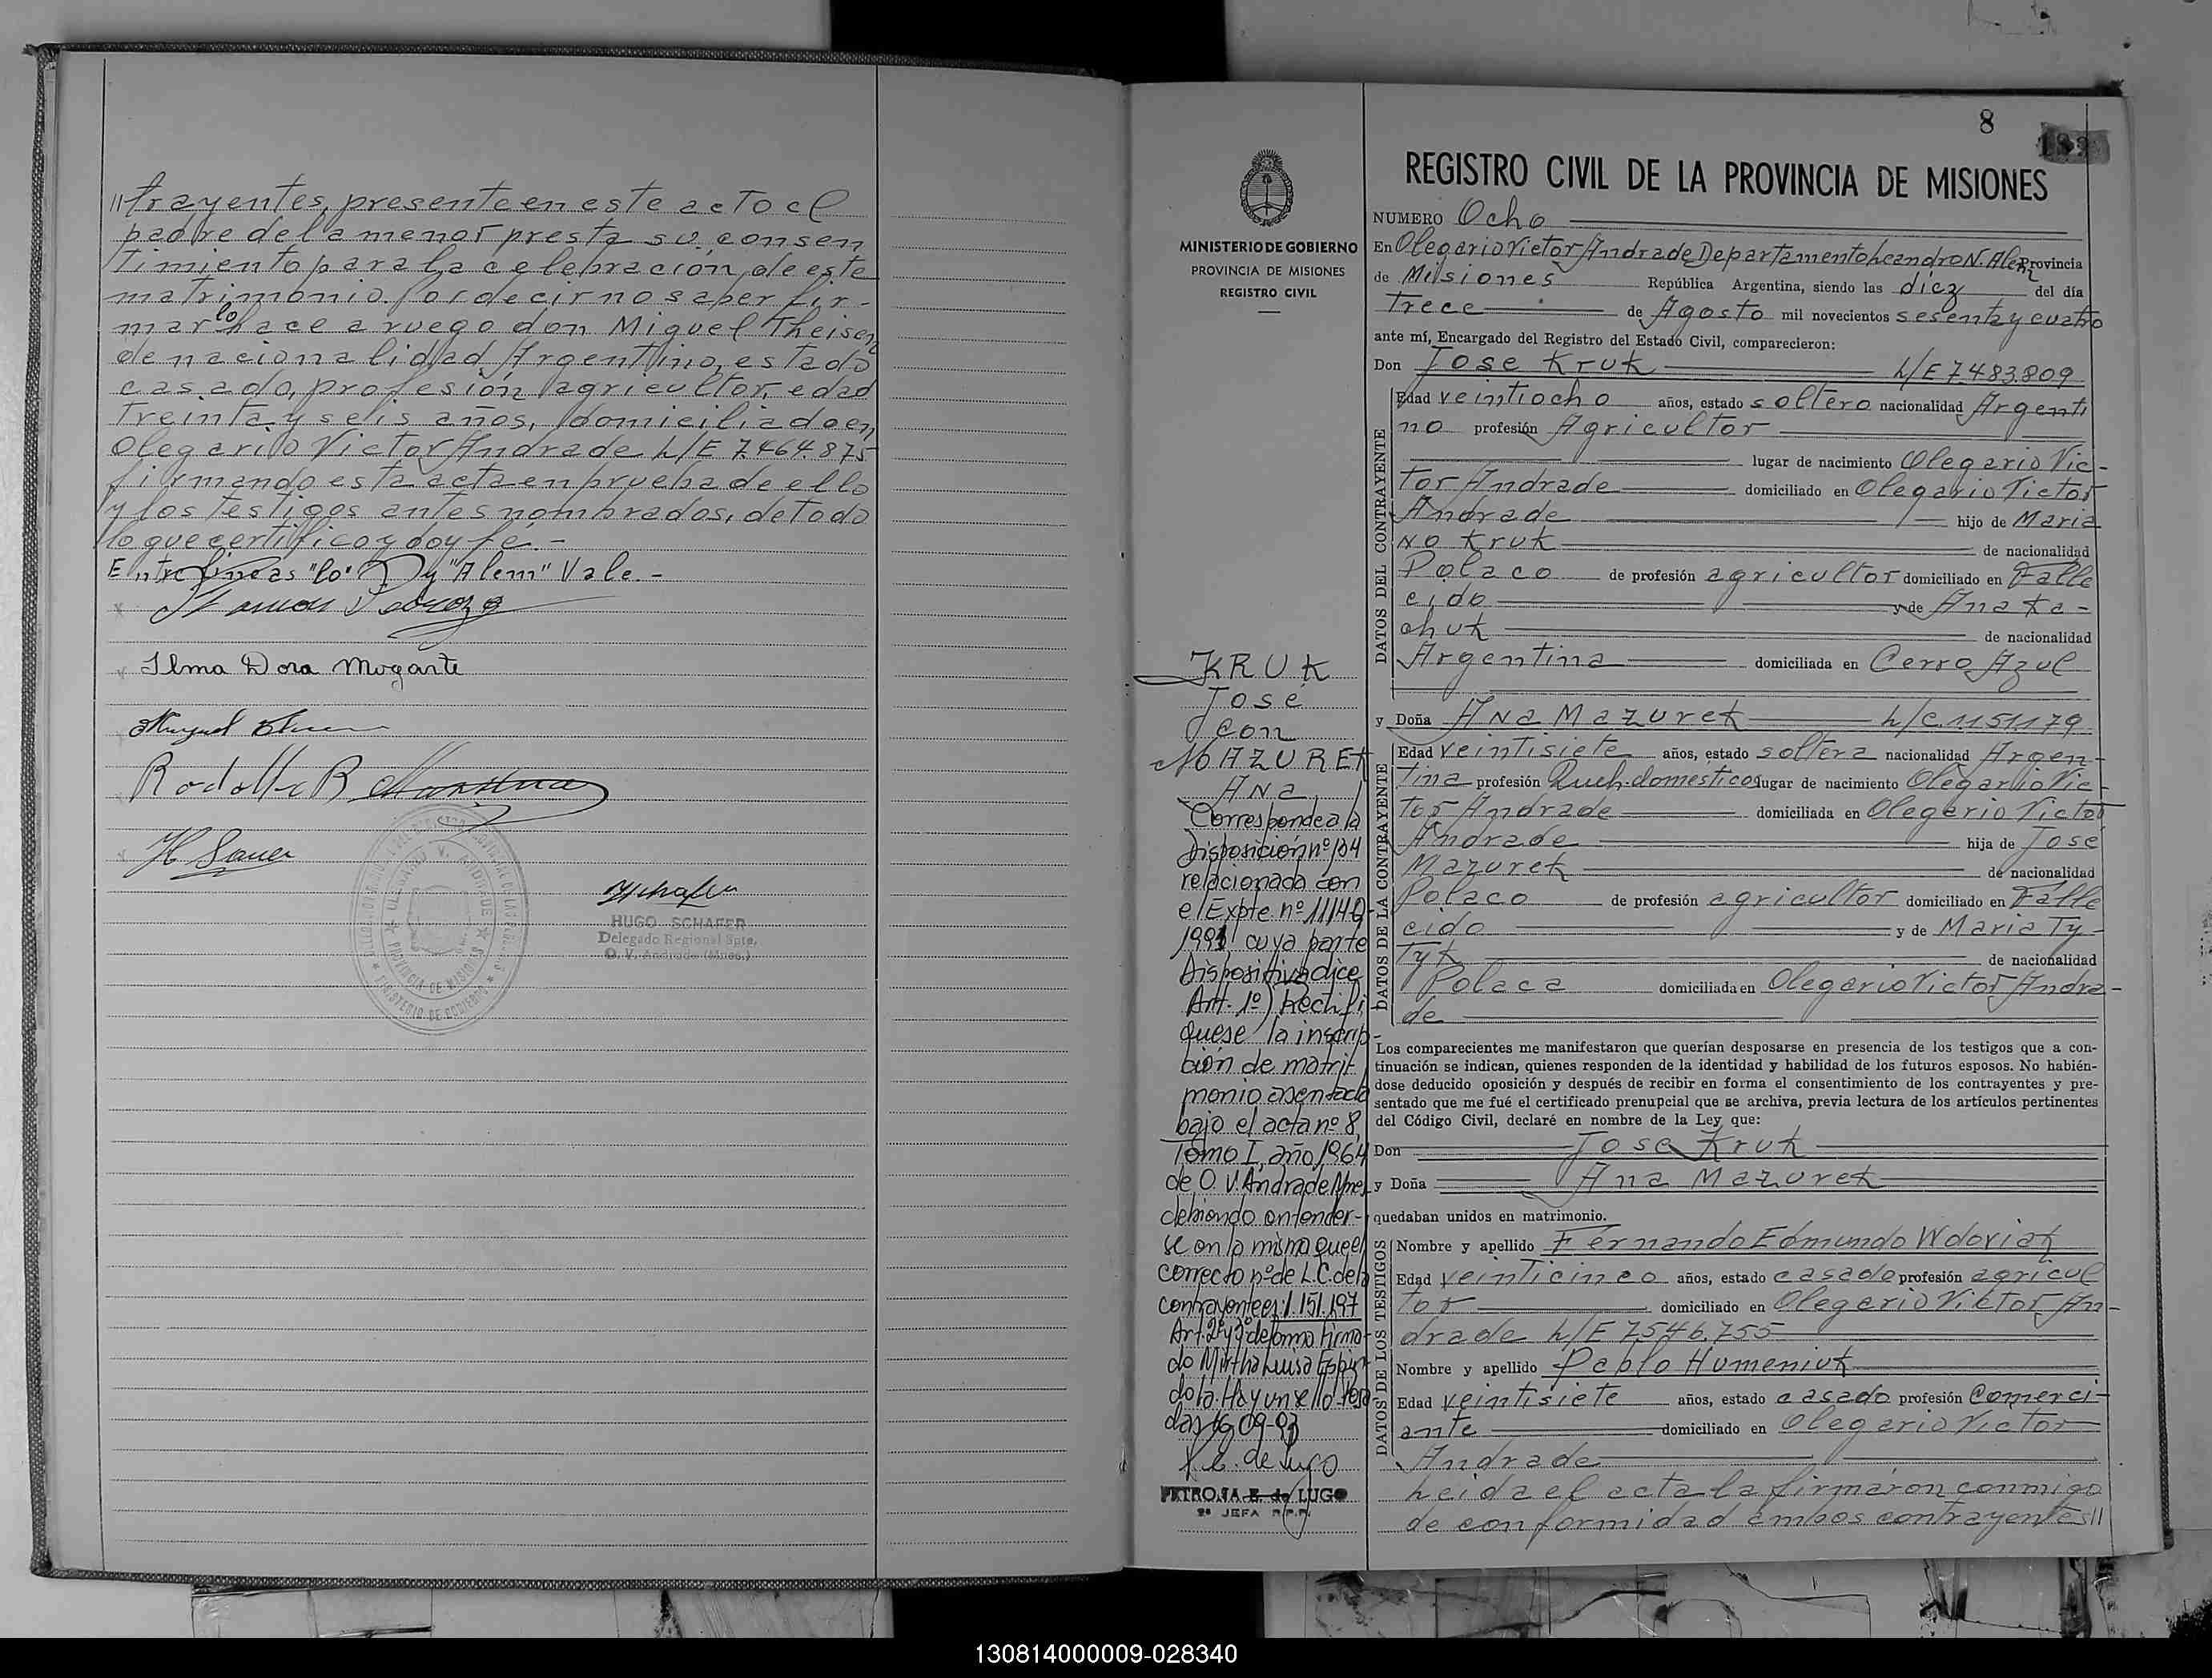 //trayentes, presente en este acto el
padre de la menor presta su consen
timiento para la celebración de este
matrimonio. Por decir no saber fir-
mar lo hace a ruego don Miguel Theisen
de nacionalidad Argentino, estado
casado, profesión agricultor, edad
treinta y seis años, domiciliado en
Olegario Victor Andrade L/E 7.464.875
firmando esta acta en prueba de ello
y los testigos antes nombrados, de todo
lo que certifico y doy fé.-
Entre líneas "lo" y "Alem" Vale.-
Ilma Dora Mogarte
Rodolfo B
H Sauer
HUGO SCHAFER
Delegado Regional Spte.
O. V. Andrade (Mnes.)
8
REGISTRO CIVIL DE LA PROVINCIA DE MISIONES
MINISTERIO DE GOBIERNO
PROVINCIA DE MISIONES
REGISTRO CIVIL
KRUK
José
con
MAZUREK
Ana
Corresponde a la
Disposición nº 104
relacionada con
el Expte. nº 11140-
1991 cuya parte
Dispositiva dice
Art. 1º) Rectifi
quese la inscrip-
ción de matri-
monio asentada
bajo el acta nº 8,
Tomo I, año 1964
de O. V. Andrade Mnes,
debiendo entender-
se en la misma que el
correcto nº de L.C. de la
contrayente es: 1.151.197
Art. 2º y 3º de forma Firma-
do Mirtha Luisa Espín
dola. Hay un sello Posa
das 16 09 93
PETRONA E. de LUGO
2ª JEFA R.P.P.
NUMERO Ocho
En Olegario Victor Andrade Departamento Leandro N. Alem Provincia
de Misiones República Argentina, siendo las diez del día
trece de Agosto mil novecientos sesenta y cuatro
ante mí, Encargado del Registro del Estado Civil, comparecieron:
Don Jose Kruk L/E 7483.809
DATOS DEL CONTRAYENTE
Edad veintiocho años, estado soltero nacionalidad Argenti
no profesión Agricultor
lugar de nacimiento Olegario Vic-
tor Andrade domiciliado en Olegario Victor
Andrade hijo de Maria
no Kruk de nacionalidad
Polaco de profesión agricultor domiciliado en Falle
cido y de Ana Ka-
chuk de nacionalidad
Argentina domiciliada en Cerro Azul
y Doña Ana Mazurek L/C. 1151179
DATOS DE LA CONTRAYENTE
Edad veintisiete años, estado soltera nacionalidad Argen-
tina profesión Queh. domesticos lugar de nacimiento Olegario Vic-
tor Andrade domiciliada en Olegario Victor
Andrade hija de José
Mazurek de nacionalidad
Polaco de profesión agricultor domiciliado en Falle
cido y de Maria Ty-
tyk de nacionalidad
Polaca domiciliada en Olegario Victor Andra-
de
Los comparecientes me manifestaron que querían desposarse en presencia de los testigos que a con-
tinuación se indican, quienes responden de la identidad y habilidad de los futuros esposos. No habién-
dose deducido oposición y después de recibir en forma el consentimiento de los contrayentes y pre-
sentado que me fué el certificado prenupcial que se archiva, previa lectura de los artículos pertinentes
del Código Civil, declaré en nombre de la Ley que:
Don Jose Kruk
y Doña Ana Mazurek
quedaban unidos en matrimonio.
DATOS DE LOS TESTIGOS
Nombre y apellido Fernando Edmundo Wdoviak
Edad veinticinco años, estado casado profesión agricul
tor domiciliado en Olegario Victor An-
drade L/E 7.546.755
Nombre y apellido Pablo Humeniuk
Edad veintisiete años, estado casado profesión Comerci-
ante domiciliado en Olegario Victor
Andrade
Leida el acta la firmaron conmigo
de conformidad ambos contrayentes//
130814000009-028340